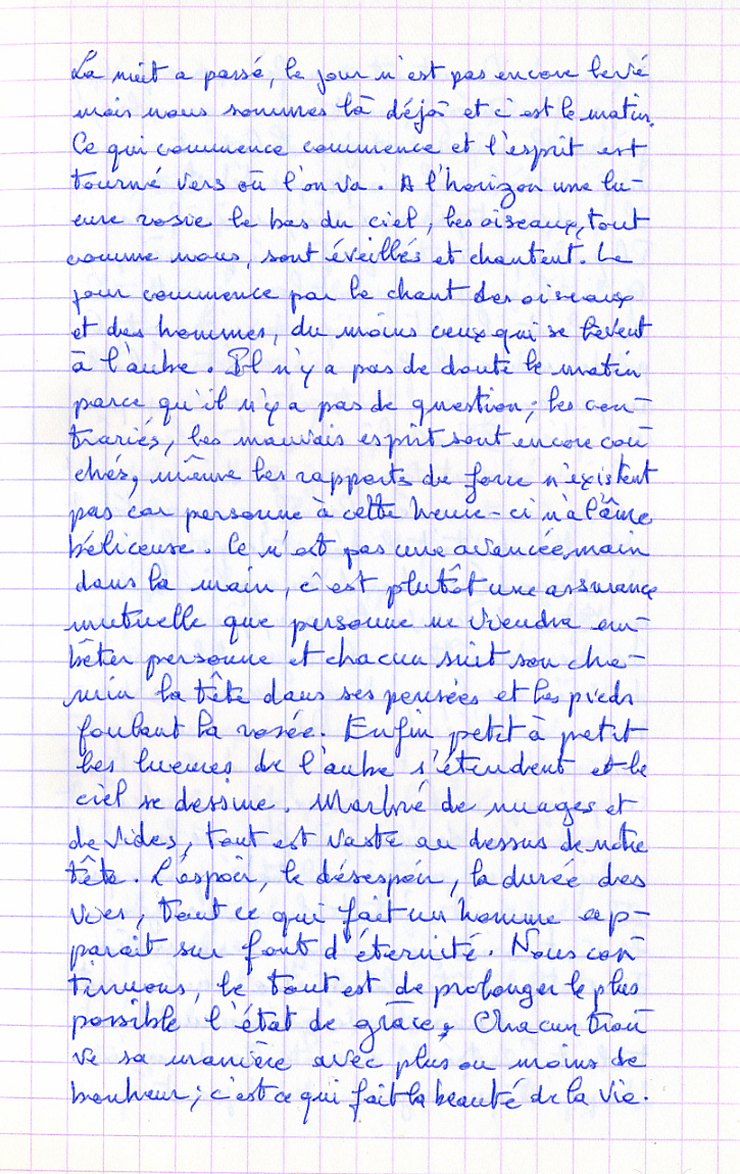 La nuit a passé, le jour n'est pas encore levé
mais nous sommes là déjà et c'est le matin.
Ce qui commence commence et l'esprit est
tourné vers où l'on va. A l'horizon une lu-
eure rosie le bas du ciel, les oiseaux, tout
comme nous, sont éveillés et chantent. Le
jour commence par le chant des oiseaux
et des hommes, du moins ceux qui se lèvent
à l'aube. Il n'y a pas de doute le matin
parce qu'il n'y a pas de question; les con-
trariés, les mauvais esprit sont encore cou-
chés, même les rapports de force n'existent
pas car personne à cette heure-ci n'a l'âme
béliceuse. Ce n'est pas une avancée main
dans la main, c'est plutôt une assurance
mutuelle que personne ne viendra em-
bêter personne et chacun suit son che-
min la tête dans ses pensées et les pieds
foulant la rosée. Enfin petit à petit
les lueures de l'aube s'étendent et le
ciel se dessine. Marbré de nuages et
de vides, tout est vaste au dessus de notre
tête. L'espoir, le désespoir, la durée des
vies, tout ce qui fait un homme ap-
parait sur font d'éternité. Nous con-
tinuons, le tout est de prolonger le plus
possible l'état de grâce, Chacun trou-
ve sa manière avec plus ou moins de
bonheur; c'est ce qui fait la beauté de la vie.